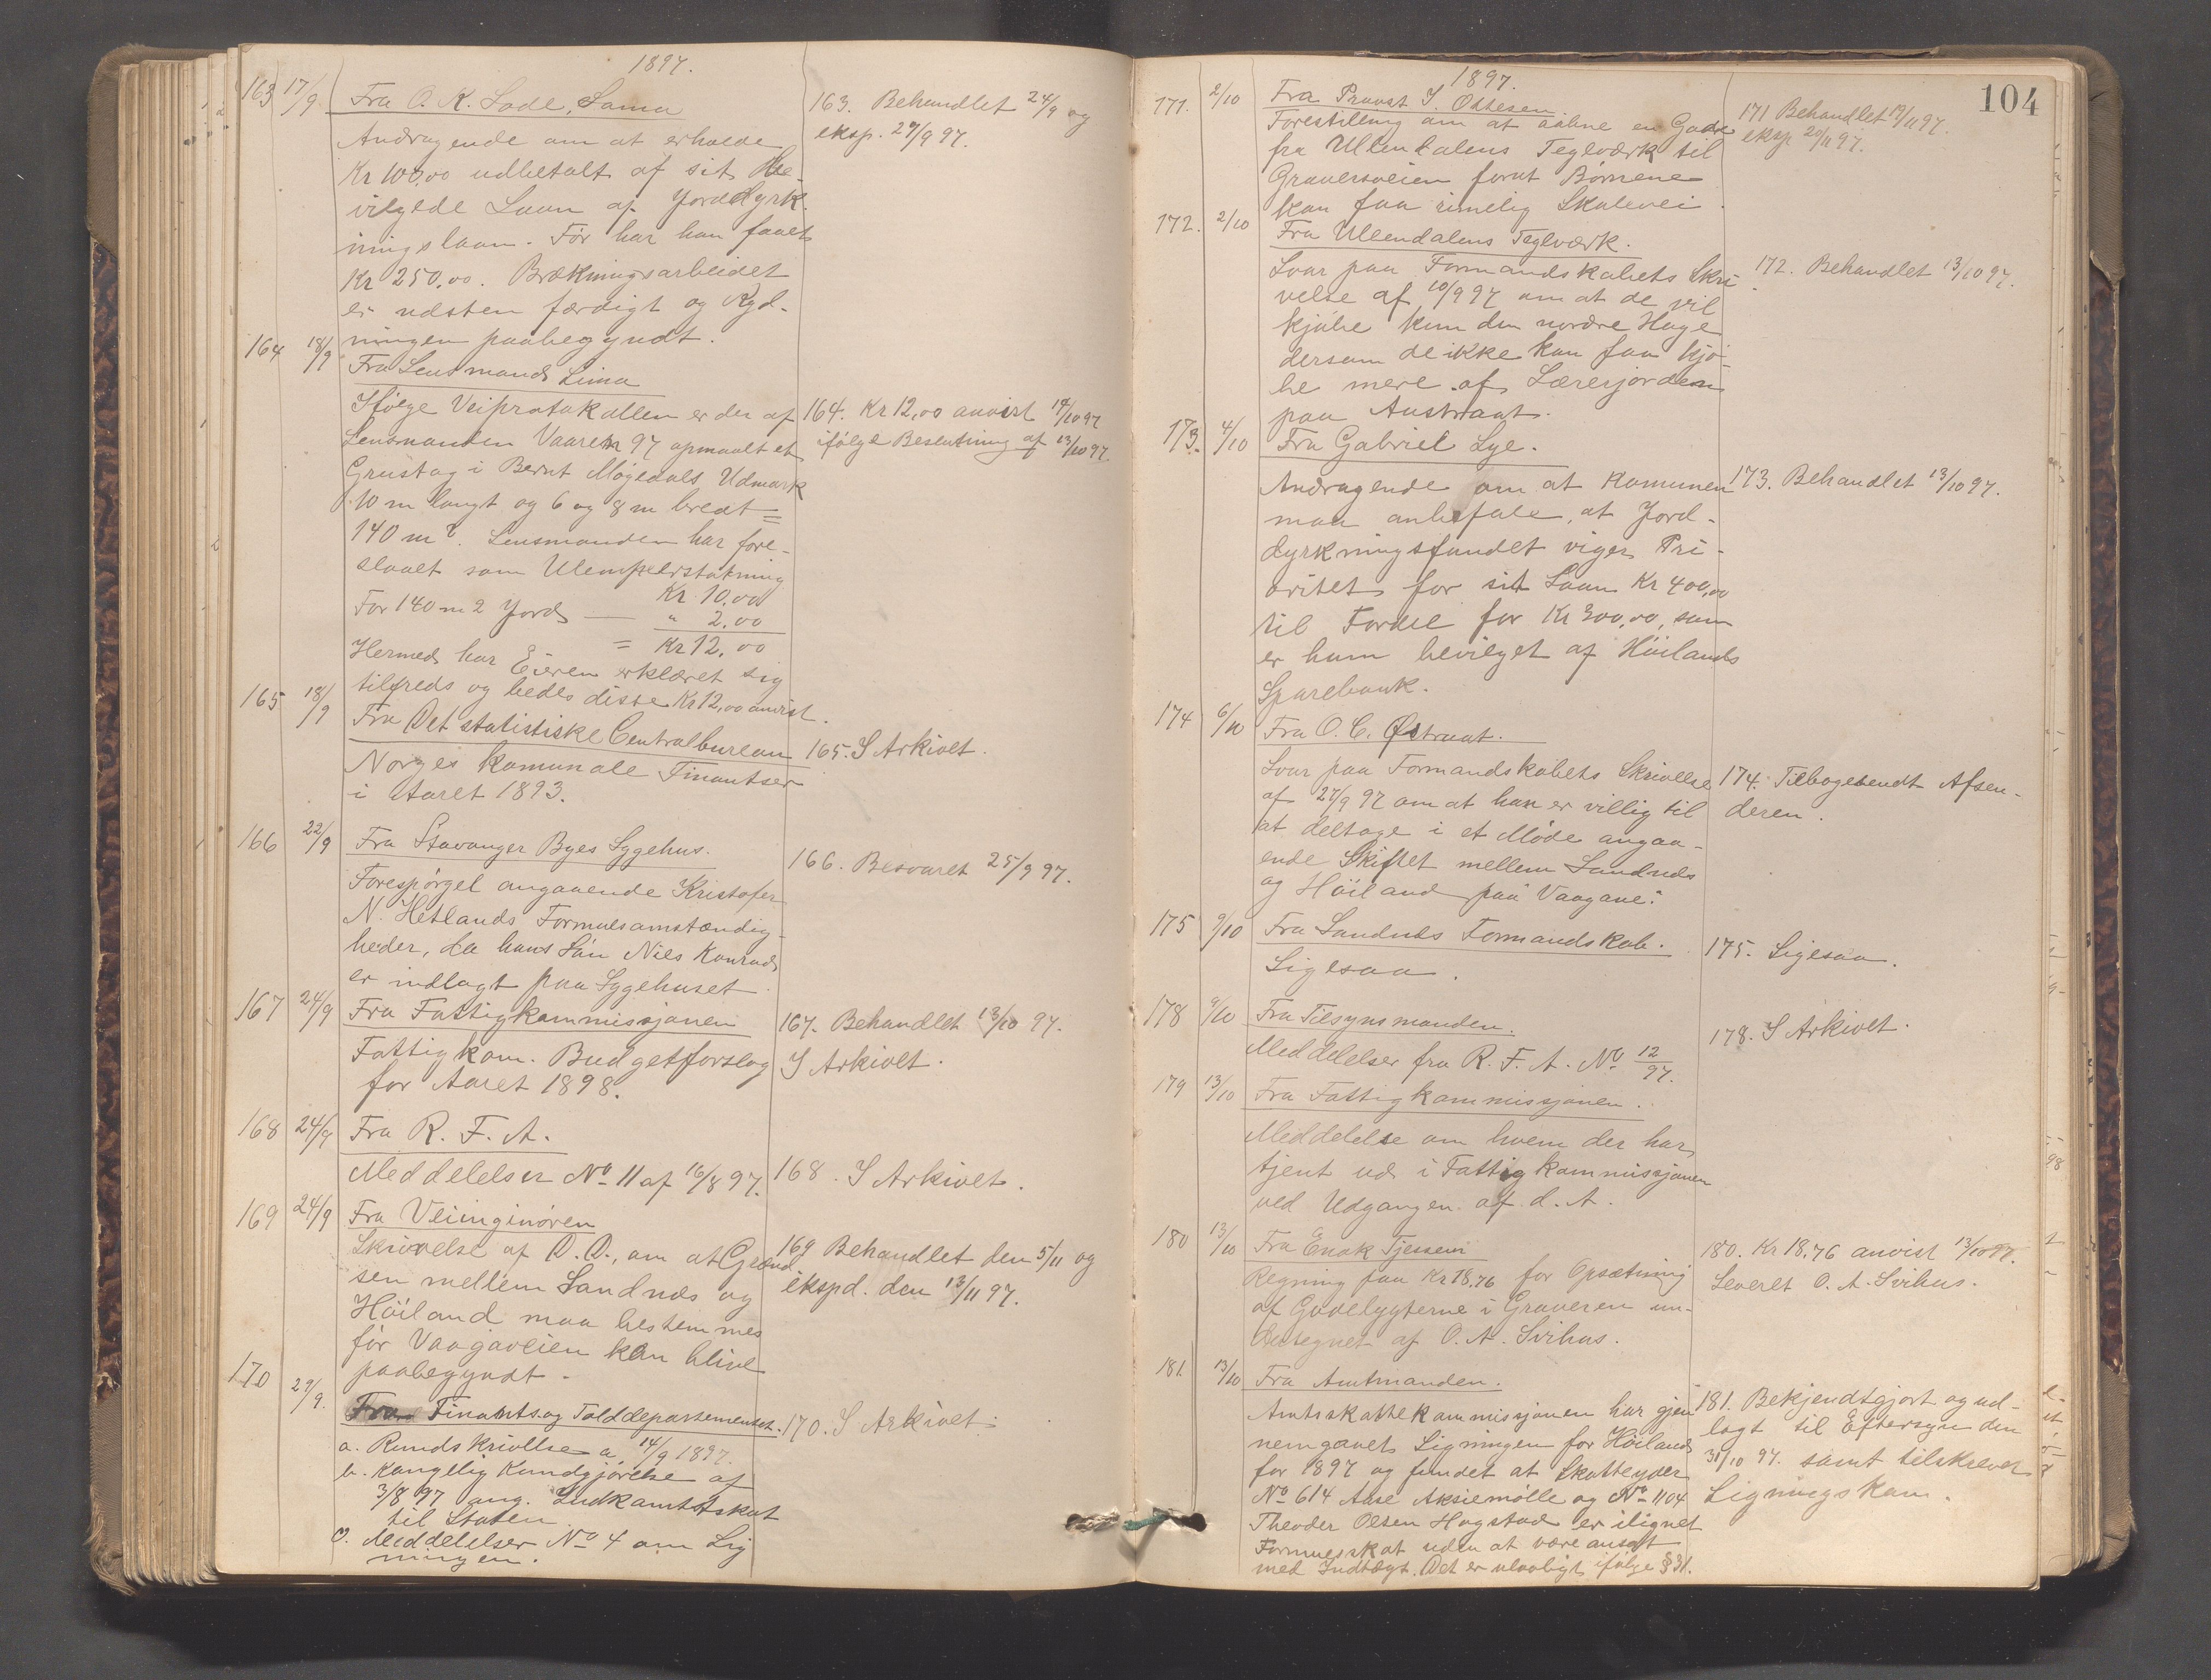 1897.
163 17/9 Fra O. K. Lode, Soma
Andragende om at erholde
Kr 100,00 udbetalt af sit Be-
vilgede Laan af Jorddyrk-
ningslaan. Før har han faaet
Kr 250,00. Brækningsarbeidet
er næsten færdigt og Ryd-
ningen paabegyndt.
163. Behandlet 24/9 og
eksp. 27/9 97.
164 18/9 Fra Lensmand Lima
Ifølge Veiprotokollen er der af
Lensmanden Vaaren 97 opmaalt et
Grustag i Bernt Møgedals Udmark
10 m langt og 6 og 8 m bredt =
140 m2. Lensmanden har fore-
slaaet som Ulempeerstatning
Kr 10,00
For 140 m2 Jord — " 2,00
= Kr 12,00
Hermed har Eieren erklæret sig
tilfreds og bedes disse Kr 12,00 anvist.
164. Kr 12,00 anvist 14/10 97
ifølge Beslutning af 13/10 97.
165 18/9 Fra Det statistiske Centralbureau
Norges kommunale Finantser
i Aaret 1893.
165. I Arkivet.
166 22/9 Fra Stavanger Byes Sygehus.
Forespørgel angaaende Kristofer
N. Hetlands Formuesomstændig-
heder, da hans Søn Niels Konrad
er indlagt paa Sygehuset.
166. Besvaret 25/9 97.
167 24/9 Fra Fattigkommissjonen
Fattigkom. Budgetforslag
for Aaret 1898.
167. Behandlet 13/10 97.
I Arkivet.
168 24/9 Fra R. F. A.
Meddelelser No 11 af 16/8 97.
168. I Arkivet.
169 24/9 Fra Veiinginøren
Skrivelse af D. D., om at Grænd
sen mellem Sandnes og
Høiland maa bestemmes
før Vaagaveien kan blive
paabegyndt.
169 Behandlet den 5/11 og
ekspd. den 13/11 97.
170 29/9. Fra Finants og Tolddepartementet.
a. Rundskrivelse a 14/9 1897.
b. Kongelig Kundgjørelse af
3/8 97 ang. Indkomstskat
til Staten
c. Meddelelser No 4 om Lig
ningen.
170. I Arkivet.
104
1897.
171. 2/10 Fra Provst S. Ottesen.
Forestilling om at aabne en Gade
fra Ullendalens Teglværk til
Graversveien forat Børnene
kan faa rimelig Skolevei.
171 Behandlet 12/11 97.
eksp 20/11 97.
172. 2/10 Fra Ullendalens Teglværk.
Svar paa Formandskabets Skri-
velse af 10/9 97 om at de vil
kjøbe kun den nordre Hage
dersom de ikke kan faa kjø-
be mere af Lærerjorden
paa Austraat.
172. Behandlet 13/10 97.
173. 4/10 Fra Gabriel Lye.
Andragende om at Komunen
maa anbefale, at Jord-
dyrkningsfondet viger Pri-
oritet for sit Laan Kr 400,00
til Fordel for Kr 300,00, som
er ham bevilget af Høilands
Sparebank.
173. Behandlet 13/10 97.
174 6/10 Fra O. C. Østraat.
Svar paa Formandskabets Skrivelse
af 27/9 97 om at han er villig til
at deltage i et Møde angaa-
ende Skiftet mellem Sandnes
og Høiland paa Vaagane.
174. Tilbagesendt Afsen-
deren.
175 9/10 Fra Sandnes Formandskab.
Ligesaa.
175. Ligesaa.
178 9/10 Fra Tilsynsmanden.
Meddelelser fra R. F. A. No 12/97.
178. I Arkivet.
179 13/10 Fra Fattigkommissjonen.
Meddelelse om hvem der har
tjent ud i Fattigkommissjonen
ved Udgangen af d. A.
180 13/10 Fra Enok Tjessem
Regning paa Kr 18,76 for Opsætning
af Gadelygterne i Graveren un-
dertegnet af O. A. Svihus.
180. Kr 18,76 anvist 13/10 97.
Leveret O. A. Svihus.
181. 13/10 Fra Amtmanden.
Amtsskattekommissjonen har gjen
nemgaaet Ligningen for Høiland
for 1897 og fundet at Skatteyder
No 614 Aase Aksiemølle og No 1104
Theodor Olsen Hogstad er ilignet
Formuesskat uden at være ansat
med Indtægt. Det er ulovligt ifølge § 31.
181. Bekjendtgjort og ud-
lagt til Eftersyn den
31/10 97. samt tilskrevet
Ligningskom.